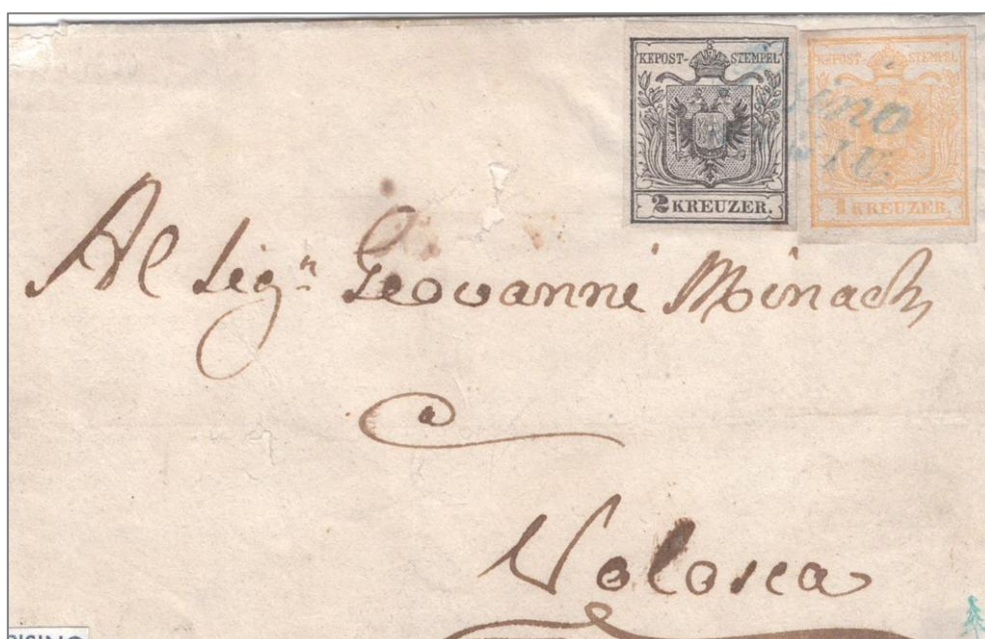 KKPOST-STEMPEL
2 KREUZER.
KKPOST-STEMPEL
1 KREUZER.
Al Sig.n Geovanni Minach
a
Volosca
PISINO